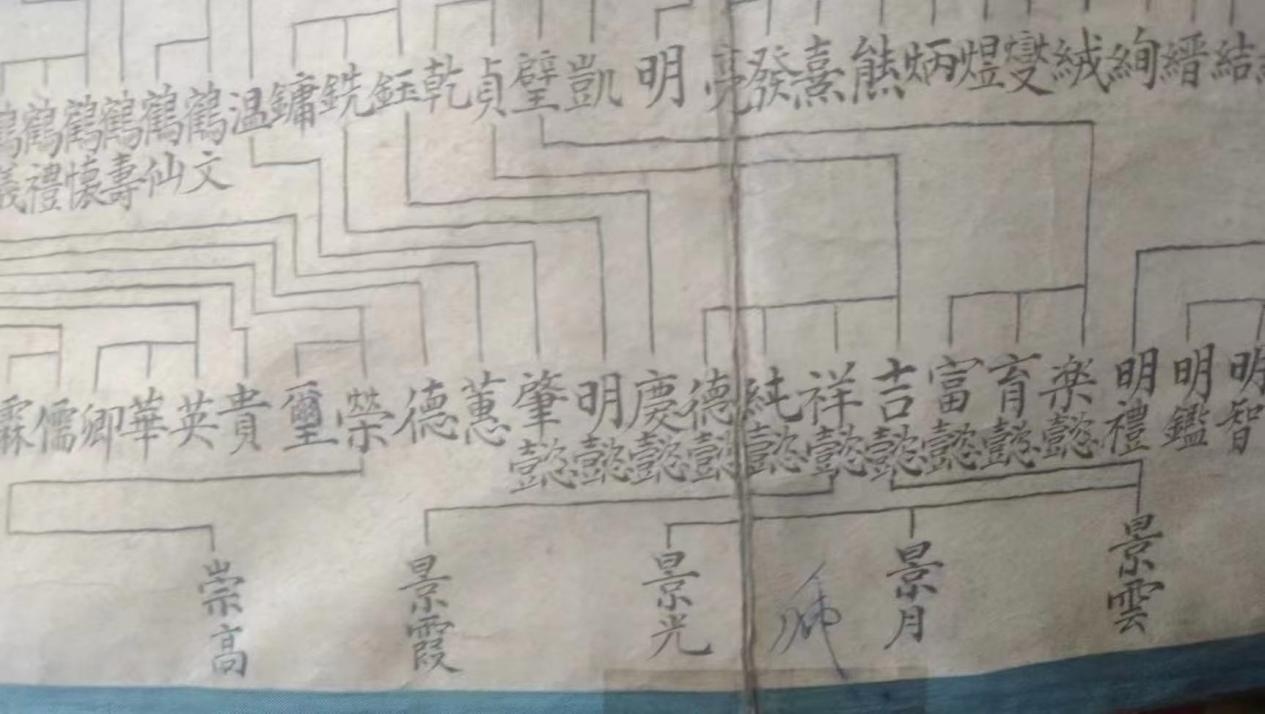 鶴 鶴 鶴 鶴 鶴 鶴 温 鏞 銑 鈺 乾 貞 璧 凱 明 亮 發 熹 熊 炳 煜 燮 絨 絢 縉 結
義 禮 懐 壽 仙 文
霖 儒 卿 華 英 貴 璽 榮 德 蕙 肇懿 明懿 慶懿 德懿 純懿 祥懿 吉懿 富懿 育懿 楽懿 明禮 明鑑 明智
崇高 景霞 景光 景月 景雲